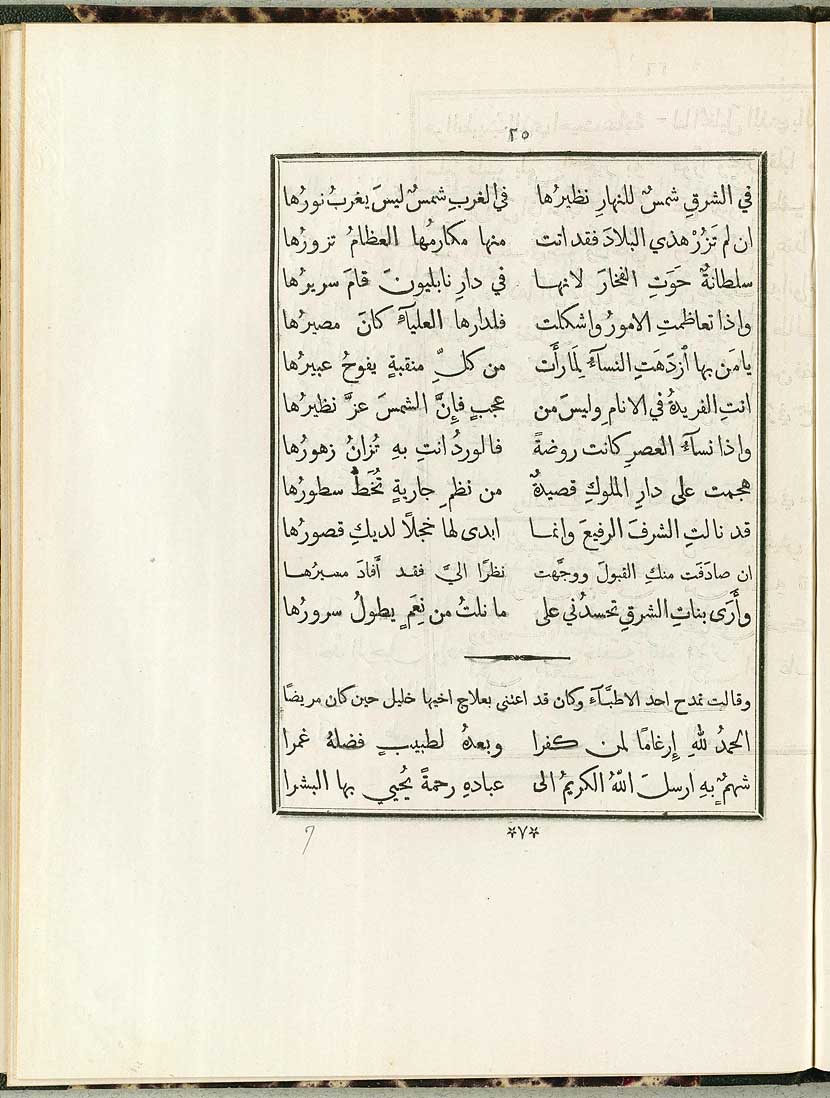 ٢٥
في الشرقِ شمسٌ للنهارِ نظيرُها في الغربِ شمسٌ ليسَ يغربُ نورُها
ان لم تَزُرْ هذي البلادَ فقد اتت منها مكارمُها العظامُ تزورُها
سلطانةٌ حَوَتِ الفخارَ لانها في دارِ نابليونَ قامَ سريرُها
واذا تعاظمتِ الامورُ واشكلت فلدارها العلياءِ كانَ مصيرُها
يا مَن بها ٱزدَهَتِ النساءُ لِمَا رأَت من كلِّ منقبةٍ يفوحُ عبيرُها
انتِ الفريدةُ في الانامِ وليسَ من عجبٍ فإِنَّ الشمسَ عزَّ نظيرُها
واذا نساءُ العصرِ كانت روضةً فالوردُ انتِ بهِ تُزانُ زهورُها
هجمت على دارِ الملوكِ قصيدةٌ من نظمِ جاريةٍ تُخَطُّ سطورُها
قد نالتِ الشرفَ الرفيعَ وانما ابدى لها خجلاً لديكِ قصورُها
ان صادَفَت منكِ القبولَ ووجَّهت نظرًا اليَّ فقد أَفادَ مسيرُها
وأَرَى بناتِ الشرقِ تحسدُني على ما نلتُ من نِعَمٍ يطولُ سرورُها
وقالت تمدح احد الاطبَّاءِ وكان قد اعتنى بعلاج اخيها خليل حين كان مريضًا
الحمدُ للهِ إِرغامًا لمن كفرا وبعدهُ لطبيبٍ فضلهُ غمرا
شهمٌ بهِ ارسلَ اللهُ الكريمُ الى عبادهِ رحمةً يُحيي بها البشرا
*٧*
7